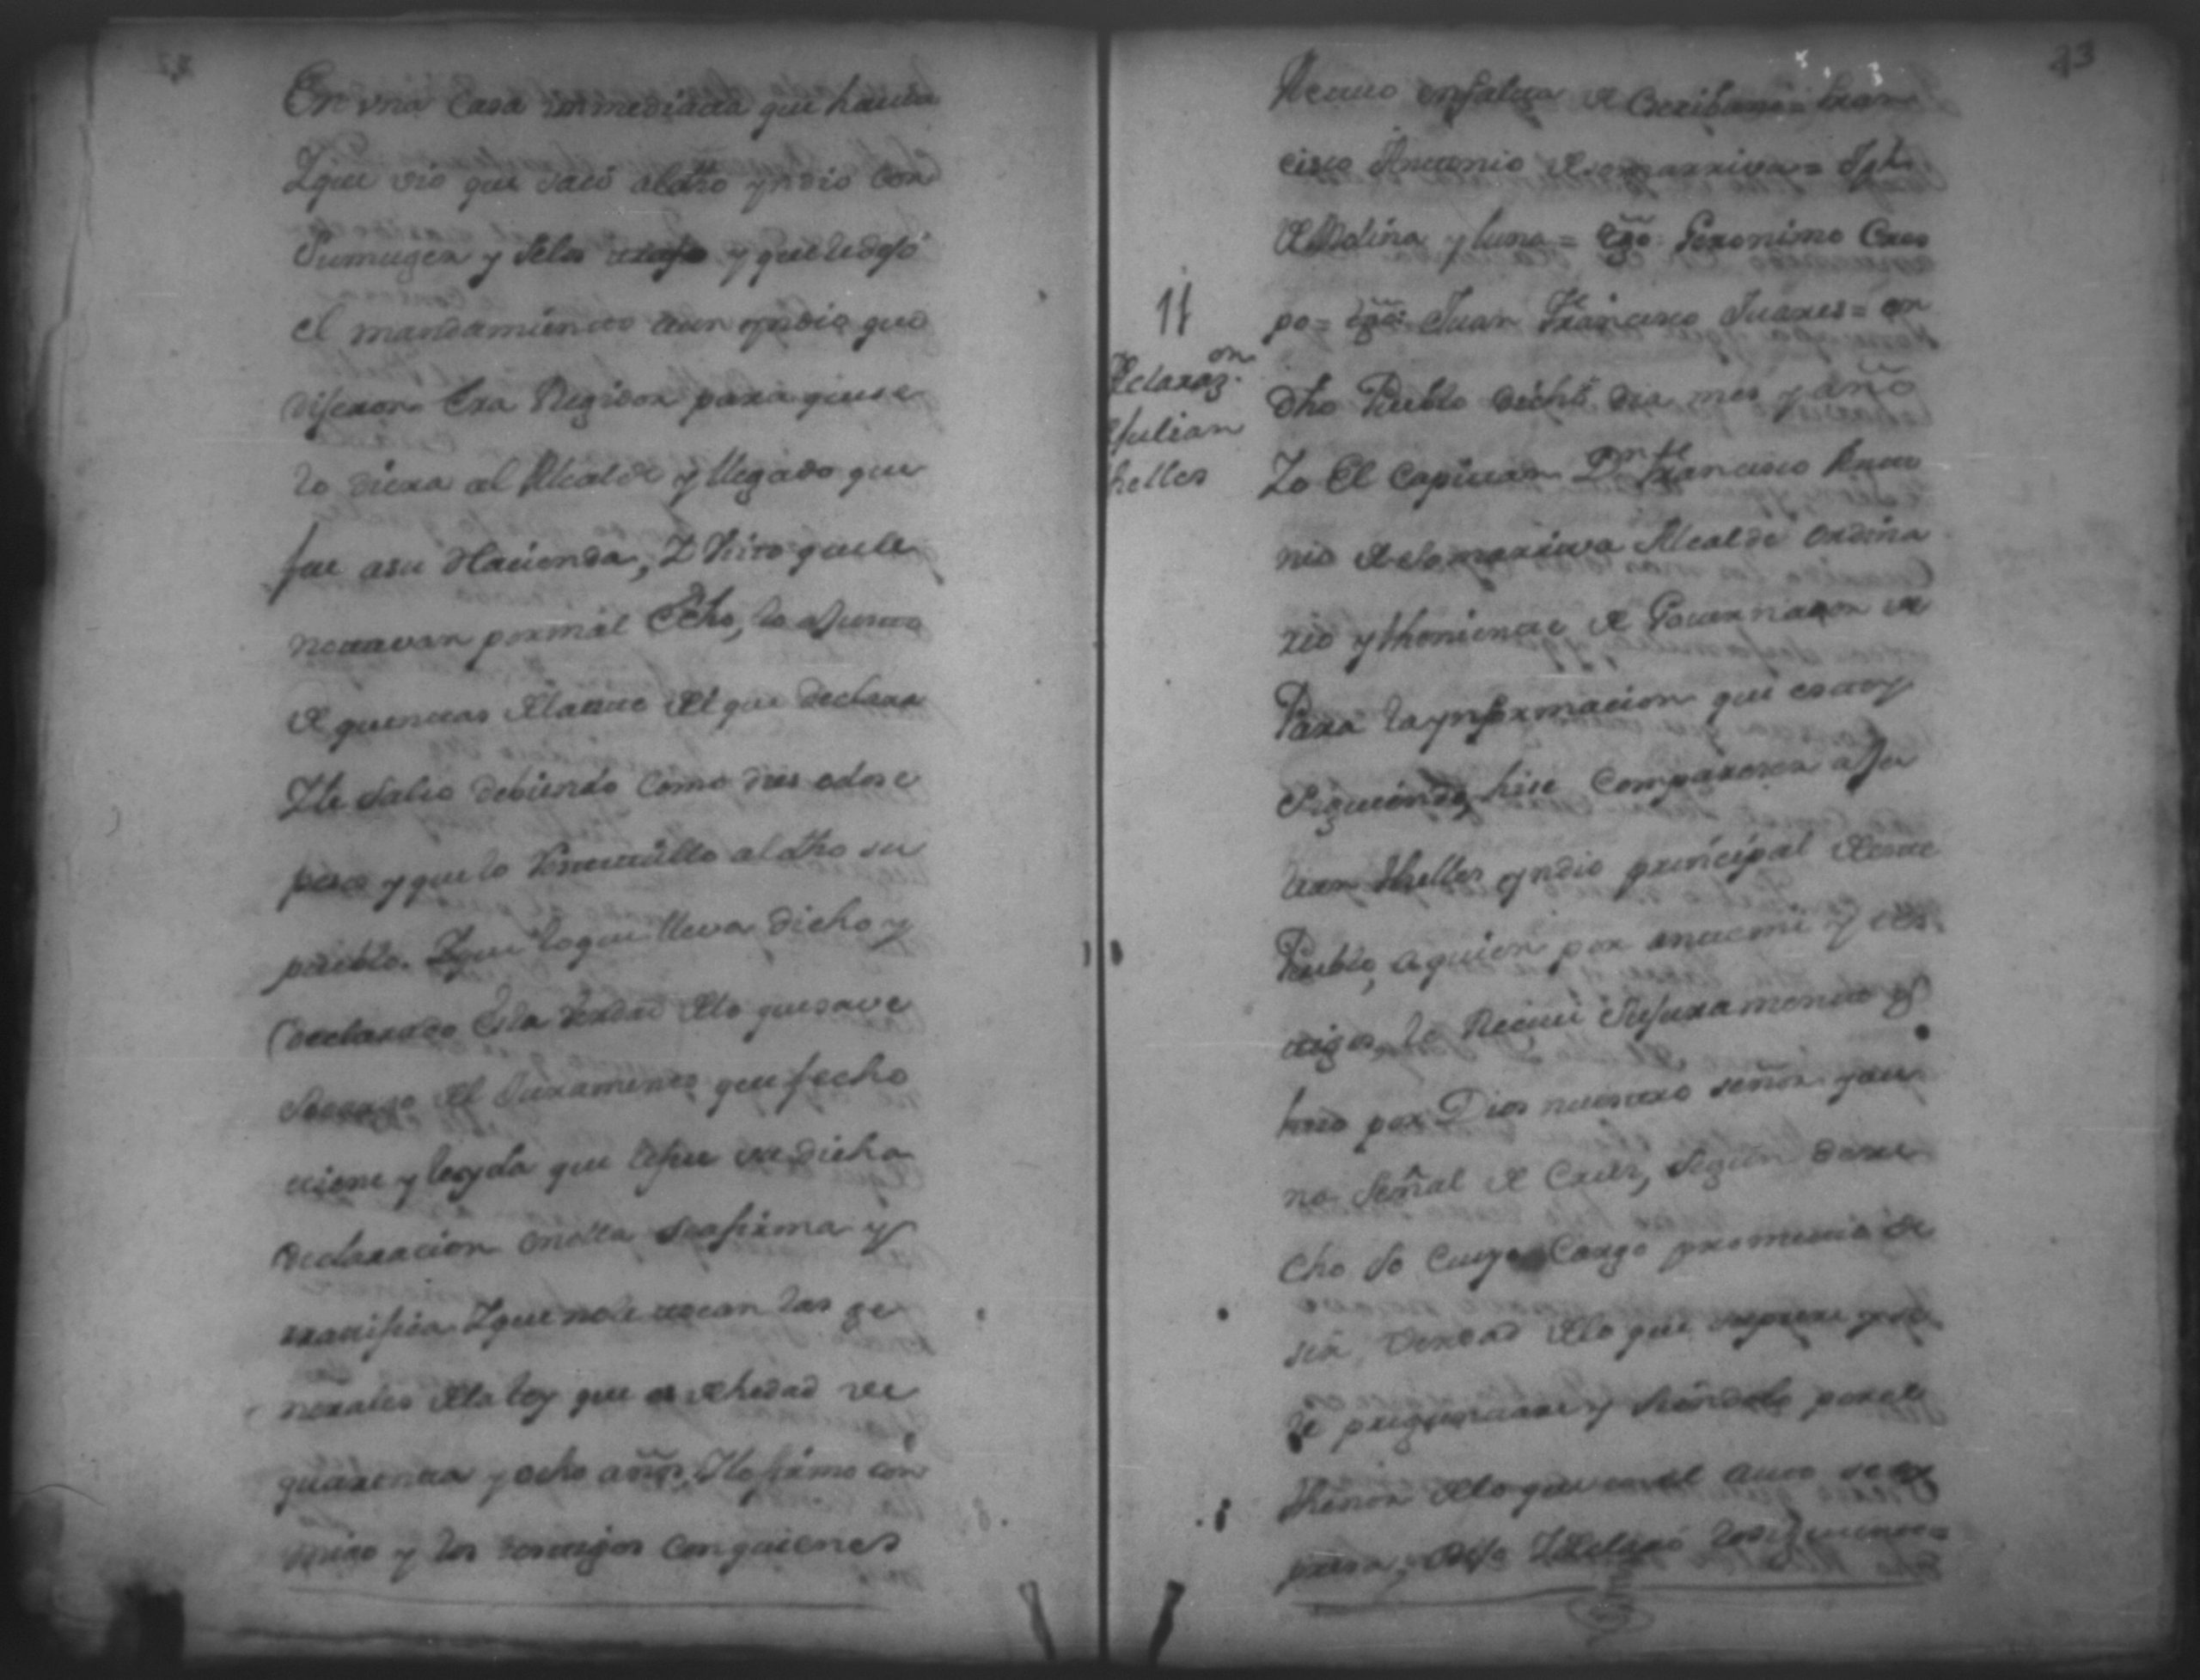 En vna Casa inmediata que hauia
Zque vio que sacó aldho yndio Con
Sumuger y Selos trajo y queledejó
el mandamiento aun yndio que
dijeron Era Regidor para quese
lo diera al Alcalde y llegado que
fue asu Hacienda, Z hizo quele
notavan pormal hecho, lo ajusto
de quentas delante del que declara
Zle Salio debiendo Como dies odose
pesos y que lo aldho su
pueblo. Zque loque lleva dicho y
declarado Esla Verdad delo quesave
Socargo del Juramento que fecho
tiene y leyda que lefue su dicha
declaracion enella seafirma y
rratifica Zque nole tocan las ge
nerales dela ley que es dehedad de
quarenta y ocho años, Zlo firmo con
migo y los testigos conquienes
23
Actuo enfalta de Escribano = Fran
cisco Antonio desomarriva = Jph
de Molina y luna = tgo: Geronimo Cres
po = tgo: Juan Francisco Juares = en
dho Pueblo dicho dia mes y año
Zo El Capitan Dn Francisco Anto
nio desomarriva Alcalde Ordina
rio y theniente de Gouernador de
Para laynformacion que estoy
Siguiendo, hise Comparecer a Ju
lian thelles yndio principal deeste
Pueblo, aquien por antemi y tes
tigos, le Reciui Sujuramento q
hizo por Dios nuestro señor y vu
na Señal de Cruz, Segun dere
cho so Cuyo Cargo prometio de
sir Verdad delo que supiere y se
le preguntare y Siendolo por el
thenor delo que en el auto se ex
presa, Dijo Zdeclaró losiguiente =
11
Declaraz.on
Julian
helles